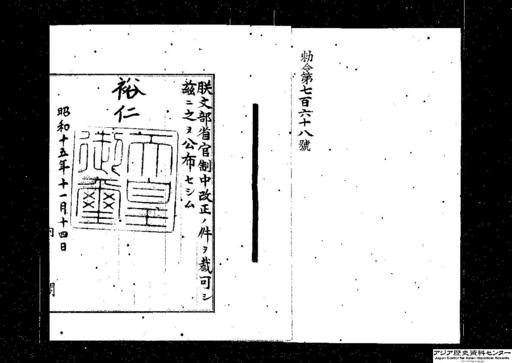 勅令第七百六十八號
朕文部省官制中改正ノ件ヲ裁可シ
茲ニ之ヲ公布セシム
裕仁
天皇
御璽
昭和十五年十一月十四日
内
閣
アジア歴史資料センター
Japan Center for Asian Historical Records